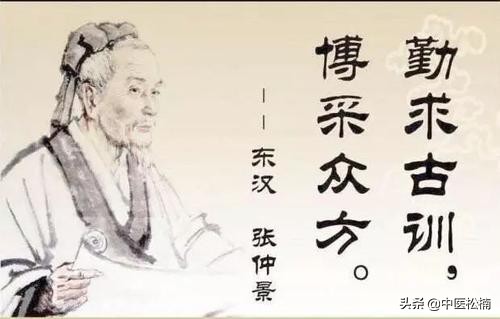 勤求古训，
博采众方。
——东汉 张仲景
头条 @中医松楠